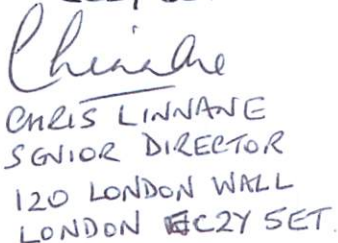 CHRIS LINNANE
SENIOR DIRECTOR
120 LONDON WALL
LONDON EC2Y 5ET.